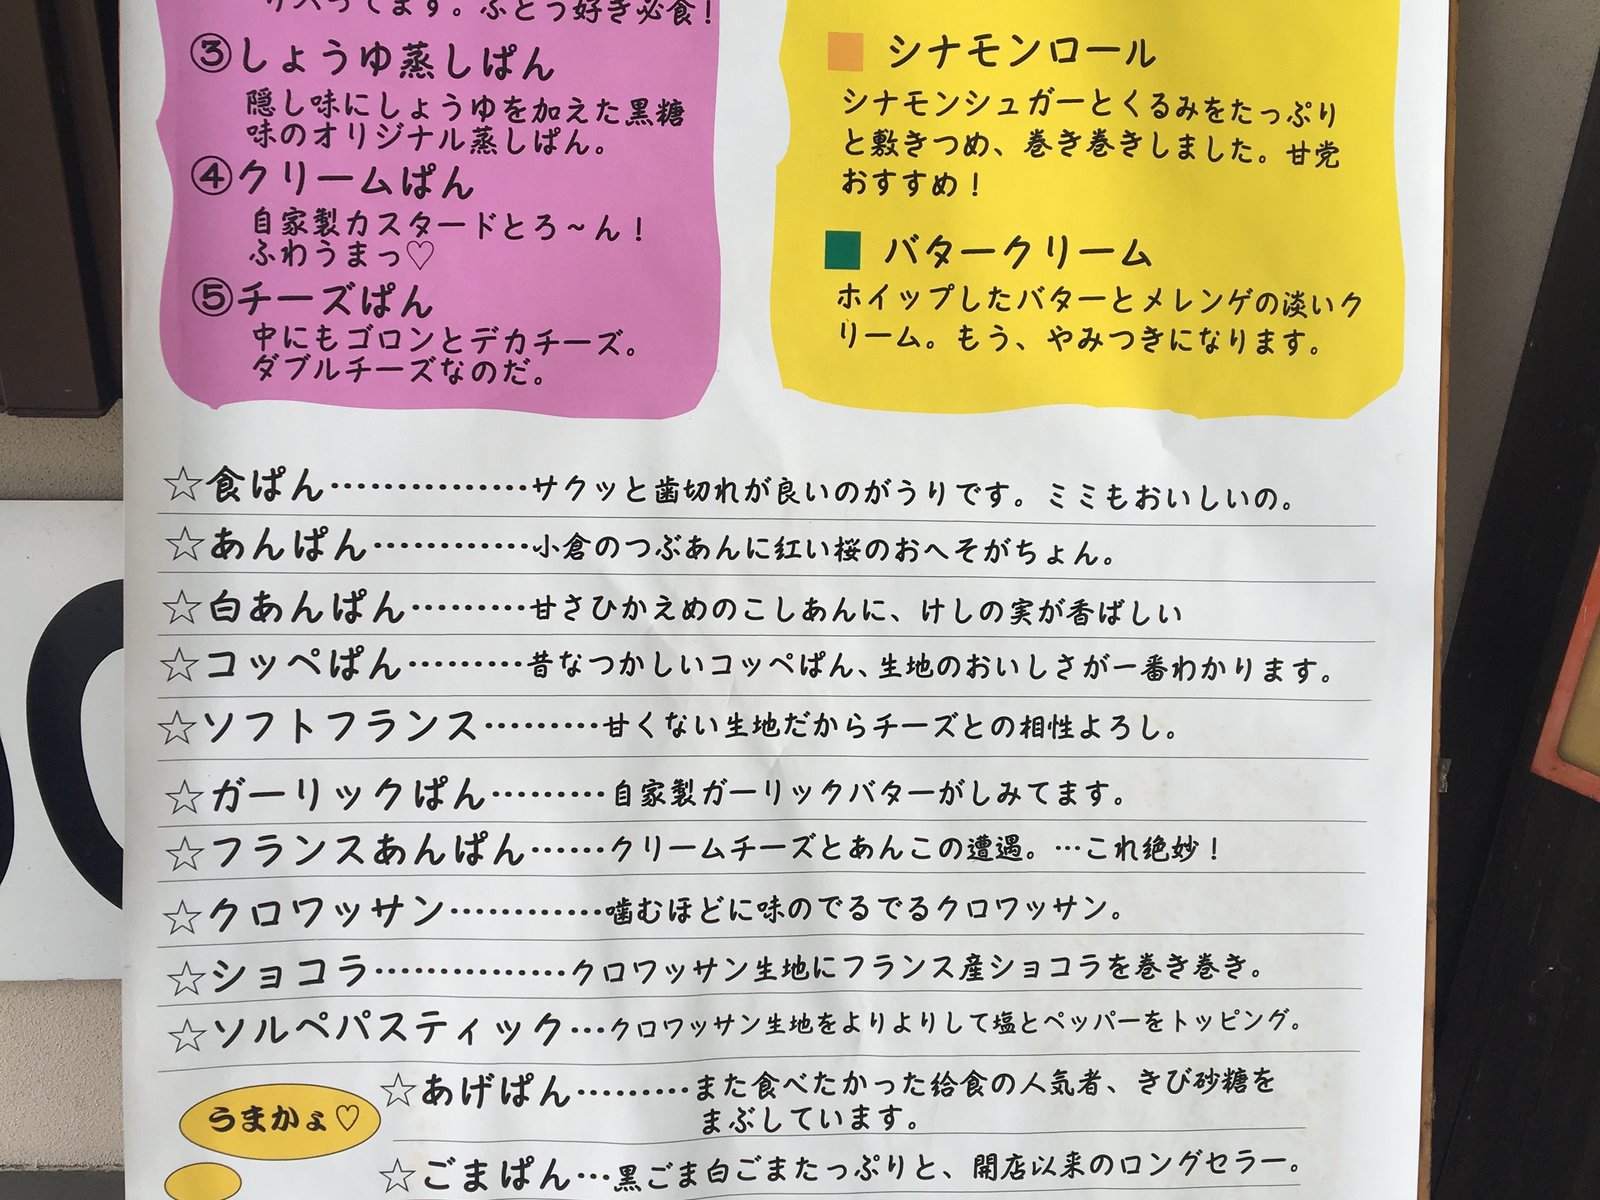 リ入ってます。ぶどう好き必食！
③しょうゆ蒸しぱん
隠し味にしょうゆを加えた黒糖
味のオリジナル蒸しぱん。
④クリームぱん
自家製カスタードとろ～ん！
ふわうまっ♡
⑤チーズぱん
中にもゴロンとデカチーズ。
ダブルチーズなのだ。
シナモンロール
シナモンシュガーとくるみをたっぷり
と敷きつめ、巻き巻きしました。甘党
おすすめ！
バタークリーム
ホイップしたバターとメレンゲの淡いク
リーム。もう、やみつきになります。
☆食ぱん……………サクッと歯切れが良いのがうりです。ミミもおいしいの。
☆あんぱん…………小倉のつぶあんに紅い桜のおへそがちょん。
☆白あんぱん………甘さひかえめのこしあんに、けしの実が香ばしい
☆コッペぱん………昔なつかしいコッペぱん、生地のおいしさが一番わかります。
☆ソフトフランス………甘くない生地だからチーズとの相性よろし。
☆ガーリックぱん………自家製ガーリックバターがしみてます。
☆フランスあんぱん……クリームチーズとあんこの遭遇。…これ絶妙！
☆クロワッサン…………噛むほどに味のでるでるクロワッサン。
☆ショコラ……………クロワッサン生地にフランス産ショコラを巻き巻き。
☆ソルペパスティック…クロワッサン生地をよりよりして塩とペッパーをトッピング。
☆あげぱん………また食べたかった給食の人気者、きび砂糖を
まぶしています。
うまかょ♡
☆ごまぱん…黒ごま白ごまたっぷりと、開店以来のロングセラー。